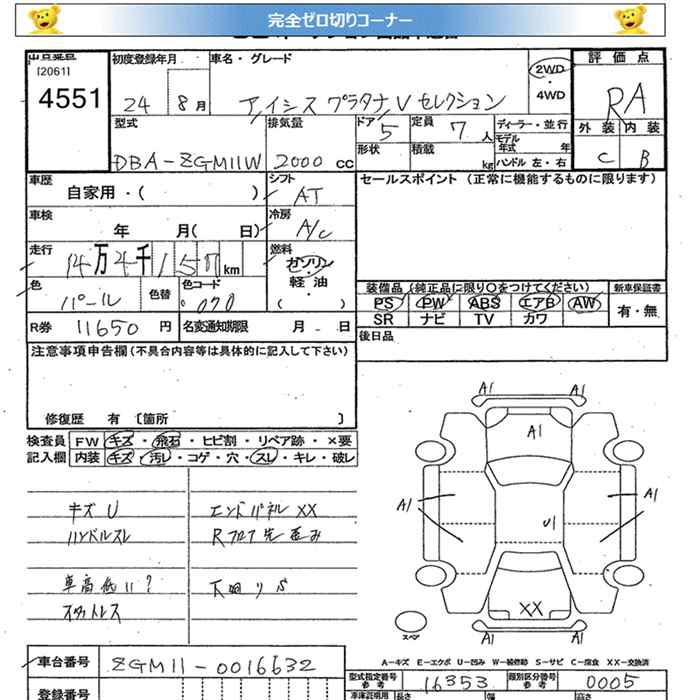 完全ゼロ切りコーナー
出品番号 初度登録年月 車名・グレード 評価点
(2061)
4551 24 8月 アイシス プラタナV セレクション 2WD・4WD RA
型式 排気量 ドア 5 定員 7人 ディーラー・並行 外装 内装
DBA-ZGM11W 2000 CC 形状 積載 kg モデル年式 年 C B
ハンドル 左・右
車歴 シフト セールスポイント (正常に機能するものに限ります)
自家用・( ) AT
車検 冷房
年 月( 日) A/C
走行 燃料
14万4千157km ガソリン・軽油
色 色替 色コード ( ) 装備品 (純正品に限り〇をつけてください) 新車保証書
パール 070 PS PW ABS エアB AW 有・無
SR ナビ TV カワ
R券 11650円 名変通知期限 月 日 後日品
注意事項申告欄(不具合内容等は具体的に記入して下さい)
修復歴 有 〔箇所 〕
検査員 FW キズ・飛石・ヒビ割・リペア跡・×要
記入欄 内装 キズ・汚レ・コゲ・穴・スレ・キレ・破レ
キズ U エンドパネル XX
ハンドルスレ Rフロア先 歪み
車高低い? 下廻りS
スタットレス
A1 A1
A1
A1 A1
U1
XX
スペア A1 A1
A-キズ E-エクボ U-凹み W-補修跡 S-サビ C-腐食 XX-交換済
車台番号 ZGM11-0016632
型式指定番号 参考 16353 類別区分番号 参考 0005
登録番号 車庫証明用 長さ 幅 高さ